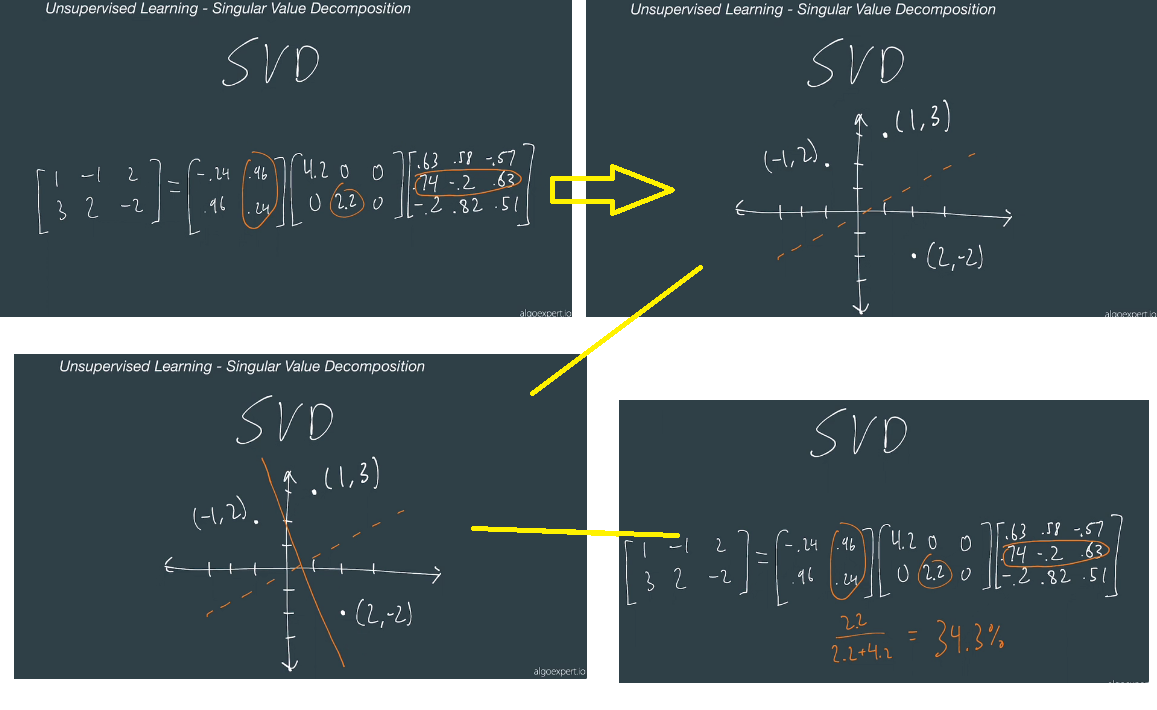 Unsupervised Learning - Singular Value Decomposition
SVD
1 -1 2
3 2 -2
=
-.24 .96
.96 .24
4.2 0 0
0 2.2 0
.63 .58 -.57
.74 -.2 .63
-.2 .82 .51
algoexpert.io
Unsupervised Learning - Singular Value Decomposition
SVD
(1,3)
(-1,2)
(2,-2)
algoexpert.io
Unsupervised Learning - Singular Value Decomposition
SVD
(1,3)
(-1,2)
(2,-2)
algoexpert.io
SVD
1 -1 2
3 2 -2
=
-.24 .96
.96 .24
4.2 0 0
0 2.2 0
.63 .58 -.57
.74 -.2 .63
-.2 .82 .51
2.2
2.2+4.2
= 34.3%